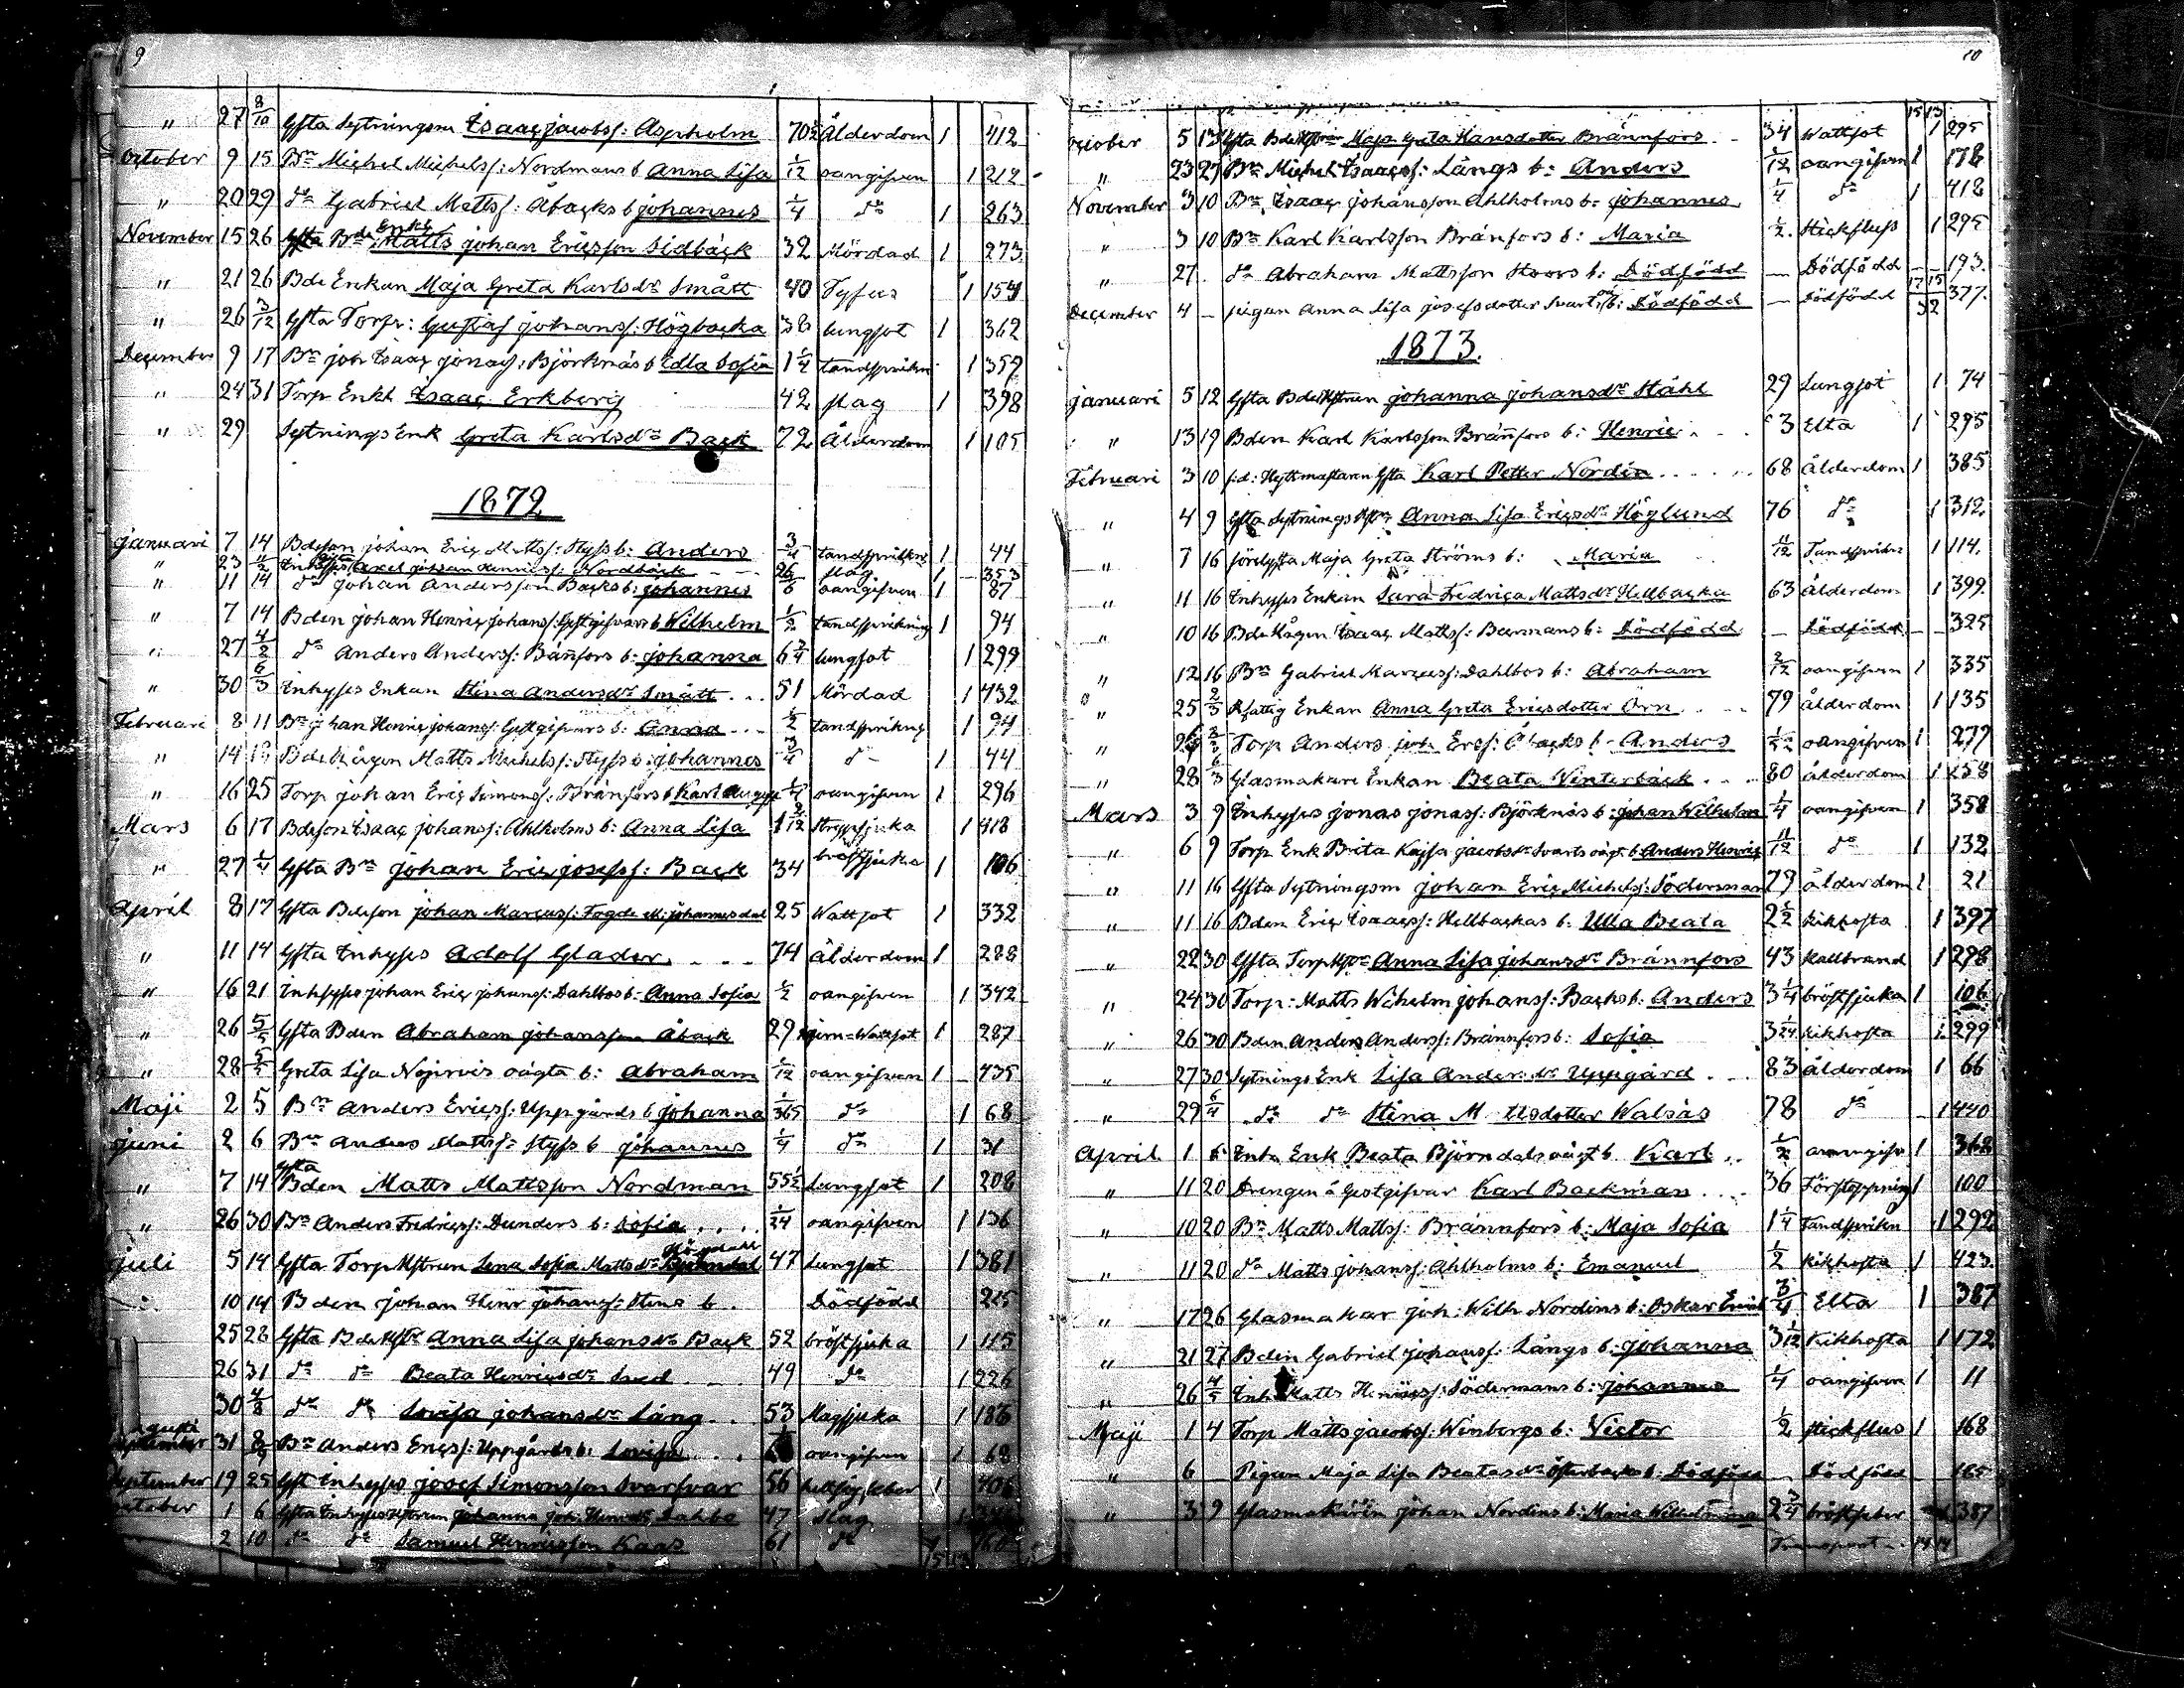 9
" 27 8/10 Gfta Sytningsm Isaac Jacobss: Aspholm 70½ Ålderdom 1 412
October 9 15 Bn Michel Michelss: Nordmans b Anna Lisa 1/12 oangifven 1 212
" 20 29 do Gabriel Mattss: Åbacks b Johannes ¼ do 1 263
November 15 26 Bde Enkl Matts Johan Ericsson Sidbäck 32 Mördad 1 273
" 21 26 Bde Enkan Maja Greta Karlsdr Smått 40 Tyfus 1 154
" 26 3/12 Gfta Torpr: Gustaf Johanss: Högbacka 38 lungsot 1 362
December 9 17 Bn Joh Isaac Jonass: Björknäs b Edla Sofia 1¼ tandsprickn 1 359
" 24 31 Torp Enkl Isaac Erkberg 42 slag 1 398
" 29 Sytnings Enk Greta Karlsdr Back 72 Ålderdom 1 105
1872
Januari 7 14 Bdeson Johan Eric Mattss: Styfs b: Anders ¾ tandsprickn 1 44
" 23 Inhyses Axel Johan Henricss: Nordbäck slag 1 353
" 11 14 do Johan Andersson Backs b: Johannes oangifven 1 87
" 7 14 Bden Johan Henric Johans: Gestgifvars b Wilhelm ½ tandsprickning 1 94
" 27 4/2 do Anders Anderss: Bränfors b: Johanna 6¾ lungsot 1 299
" 30 6/3 Inhyses Enkan Stina Andersdr Smått 51 Mördad 1 432
Februari 8 11 Bn Johan Henric Johans: Gestgifvars b: Anna ½ tandsprickng 1 94
" 14 18 Bde Mågen Matts Michelss: Styfs b: Johannes ¾ do 1 44
" 16 25 Torp Johan Eric Simonss: Bränfors b Karl August oangifven 1 296
Mars 6 17 Bdeson Isaac Johanss: Ahlholms b: Anna Lisa 1 2/12 strypsjuka 1 418
" 27 ¼ Gfta Bn Johan Eric Josefss: Back 34 bröstsjuka 1 106
April 8 17 Gfta Bdeson Johan Marcuss: Fogde M: Johannesdal 25 Wattsot 1 332
" 11 14 Gfta Inhyses Adolf Glader 74 Ålderdom 1 288
" 16 21 Inhyses Johan Eric Johanss: Dahlbos b: Anna Sofia ½ oangifven 1 342
" 26 5/5 Gfta Bden Abraham Johansson Åback 29 Wattsot 1 287
" 28 5/5 Greta Lisa Nojervis oägta b: Abraham 1/12 oangifven 1 435
Maji 2 5 Bn Anders Ericss: Uppgårds b Johanna 1/365 do 1 68
Juni 2 6 Bn Anders Mattss: Styfs b Johannes ¼ do 1 31
" 7 14 Gfta Bden Matts Mattsson Nordman 55½ Lungsot 1 208
" 26 30 Bn Anders Fredricss: Dunders b: Sofia 1/24 oangifven 1 136
Juli 5 14 Gfta Torp Hstrun Lena Sofia Mattsdr 47 Lungsot 1 381
" 10 14 Bden Johan Henr Johanss: Stens b Dödfödd 215
25 28 Gfta Bde Hstr Anna Lisa Johansdr Back 52 bröstsjuka 1 115
26 31 do do Beata Henricsdr Sved 49 do 1 226
30 4/8 do do Lovisa Johansdr Lång 53 Magsjuka 1 186
Augusti 31 Bn Anders Ericss: Uppgårds b: Lovisa oangifven 1 68
September 19 25 Gft Inhyses Josef Simonsson Svarfvar 56 1 406
October 1 6 Gfta Inhyses Hstrun Johanna Joh: Henrdr Dahlbo 47 slag 1
2 10 do do Samuel Henricsson Kaas 61 do 160
10
15 13
October 5 13 Gfta Bde Hstrun Maja Greta Hansdotter Brännfors 34 Wattsot 1 295
" 23 27 Bn Michel Isaacss: Långs b: Anders 1/12 oangifven 1 178
November 3 10 Bn Isaac Johansson Ahlholms b: Johannes ¼ do 1 418
" 3 10 Bn Karl Karlsson Bränfors b: Maria ½ Stickfluss 1 295
" 27 do Abraham Mattsson Stoors b: Dödfödd — Dödfödd — 193
December 4 — pigan Anna Lisa Josefsdotter Svarts b: Dödfödd — Dödfödd 377
17 15
32
1873.
Januari 5 12 Gfta Bde Hstrun Johanna Johansdr Ståhl 29 Lungsot 1 74
" 13 19 Bden Karl Karlsson Bränfors b: Henric 3 Elta 1 295
Februari 3 10 f:d: Hyttmästaren Gfta Karl Petter Nordin 68 ålderdom 1 385
" 4 9 Gfta Sytnings Hstr Anna Lisa Ericsdr Höglund 76 do 1 312
" 7 16 förelgfta Maja Greta Ströms b: Maria 11/12 Tandsprickn 1 114
" 11 16 Inhyses Enkan Sara Fredrica Mattsdr Hellbacka 63 ålderdom 1 399
" 10 16 Bde Mågen Isaac Mattss: Beermans b: Dödfödd — Dödfödd — 325
" 12 16 Bn Gabriel Marcuss: Dahlbos b: Abraham 2/12 oangifven 1 335
" 25 2/3 Rfattig Enkan Anna Greta Ericsdotter Örn 79 ålderdom 1 135
" 26 Torp Anders Joh Ercs: Åbacks b: Anders 1/12 oangifven 1 277
" 28 6/3 Glasmakare Enkan Beata Winterbäck 80 ålderdom 1 258
Mars 3 9 Inhyses Jonas Jonass: Björknäs b: Johan Wilhelm ¼ oangifven 1 358
" 6 9 Torp Enk Brita Kajsa Jacobsdr Svarts oägt: b: Anders Henric 11/12 do 1 132
" 11 16 Gfta Sytningsm Johan Eric Michelss: Söderman 79 ålderdom 1 21
" 11 16 Bden Eric Isaacss: Hellbackas b: Ulla Beata 2½ kikhosta 1 397
" 22 30 Gfta Torp Hstr Anna Lisa Johansdr Brännfors 43 kallbrand 1 298
" 24 30 Torp: Matts Wilhelm Johanss: Backs b: Anders 3¼ bröstsjuka 1 106
" 26 30 Bden Anders Anderss: Brännfors b: Sofia 3 1/24 kikhosta 1 299
" 27 30 Sytnings Enk Lisa Andersdr Uppgård 83 ålderdom 1 66
" 29 6/4 do do Stina M tsdotter Walsäs 78 do 1 440
April 1 6 Inh Enk Beata Björndals oägt b Karl ½ oangifv 1 362
" 11 20 Drengen å Gestgifvar Karl Backman 36 Förstoppning 1 100
" 10 20 Bn Matts Mattss: Brännfors b: Maja Sofia 1¼ Tandsprickn 1 292
" 11 20 do Matts Johanss: Ahlholms b: Emanuel ½ kikhosta 1 423
" 17 26 Glasmakar Joh: Wilh Nordins b: Oskar Emil ¾ Elta 1 387
" 21 27 Bden Gabriel Johanss: Långs b: Johanna 3 1/12 Kikhosta 1 172
" 26 4/5 Inh Matts Henricss: Södermans b: Johannes ¼ oangifven 1 11
Maji 1 4 Torp Matts Jacobss: Winbergs b: Victor ½ stickflus 1 168
" 6 Pigan Maja Lisa Beatasdr Österbacks b: Dödfödd — Dödfödd — 165
" 3 9 Glasmakaren Johan Nordins b: Maria Wilhelmina 2¾ bröstfeber 387
Transport: 14 14